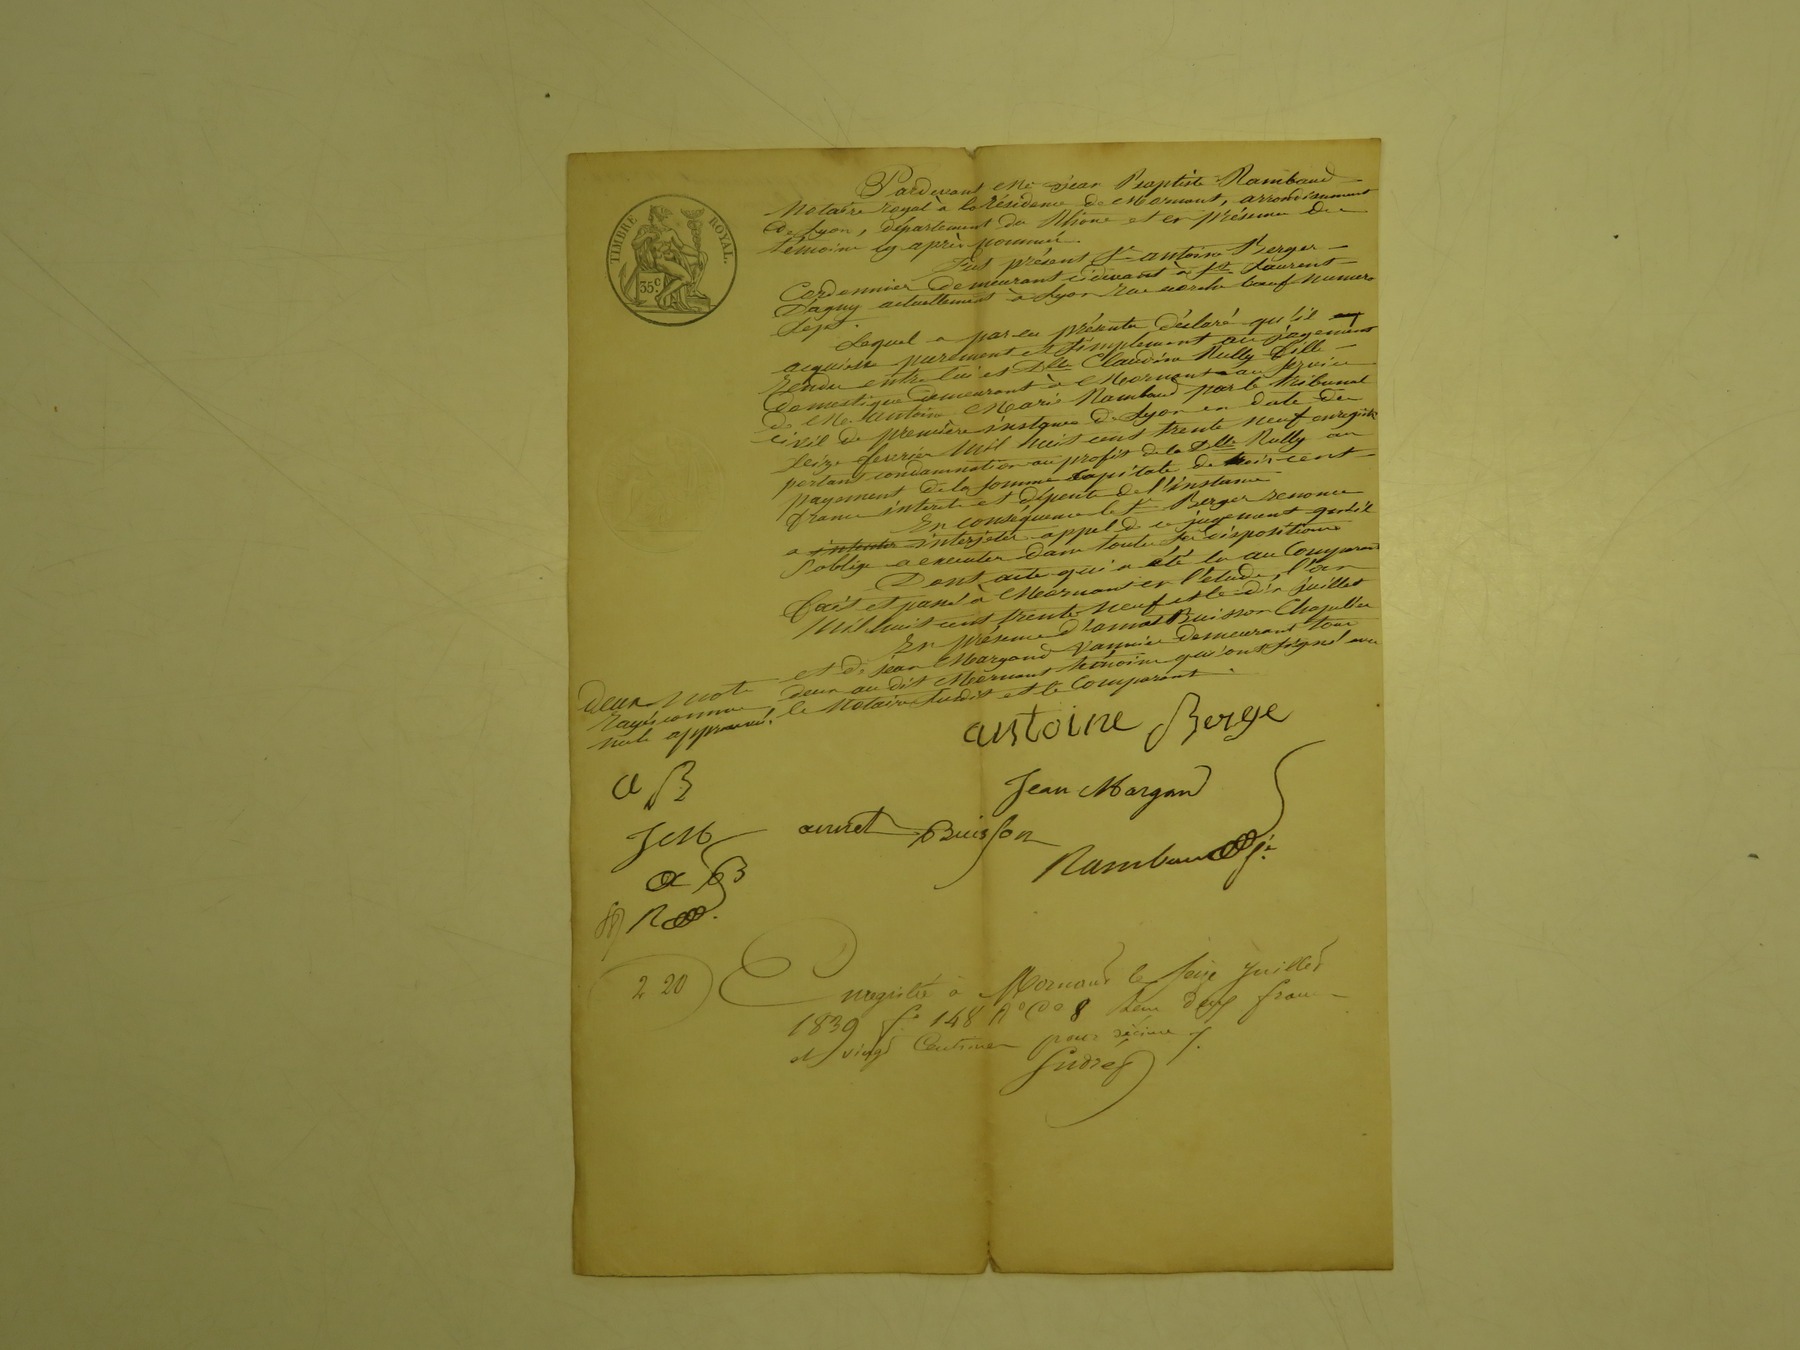 TIMBRE ROYAL.
35 c
Pardevant Me Jean Baptiste Rambaud
Notaire royal à la résidence de Mornant, arrondissement
de Lyon, département du Rhône et en présence des
témoins cy après nommés.
Fut présent Sr antoine Berger
Cordonnier demeurant cidevant à St Laurent
Dagny actuellement à Lyon rue bœuf numero
Sept.
Lequel a par ces présentes déclaré qu'il
acquiesce purement et simplement au jugement
rendu entre lui et Dlle Claudine Rully fille
domestique demeurant à Mornant au service
de Me antoine Marie Rambaud par le tribunal
civil de première instance de Lyon en date du
seize fevrier mil huit cent trente neuf enregistré
portant condamnation au profit de la Dlle Rully au
payement de la somme Capitale de trois cent
francs interets et dépents de l'instance
En conséquence le Sr Berger renonce
a intenter interjeter appel de ce jugement qu'il
s'oblige a executer dans toutes ses dispositions
Dont acte qui a été lu au Comparant
fait et passé à Mornant en l'etude, l'an
mil huit cent trente neuf et le dix juillet
En présence d' Buisson Chapellier
et de jean Margand demeurant tous
deux au dit Mornant témoins qui ont signé avec
le Notaire susdit et le Comparant.
deux mots
rayés comme
nuls approuvés.
antoine Berge
a B
Jean Margand
J M
Buisson
Rambaud
a B
R
2 20
Enregistré à Mornant le seize juillet
1839 fo 148 Ro Co 8 Recu deux francs
et vingt Centimes pour décime